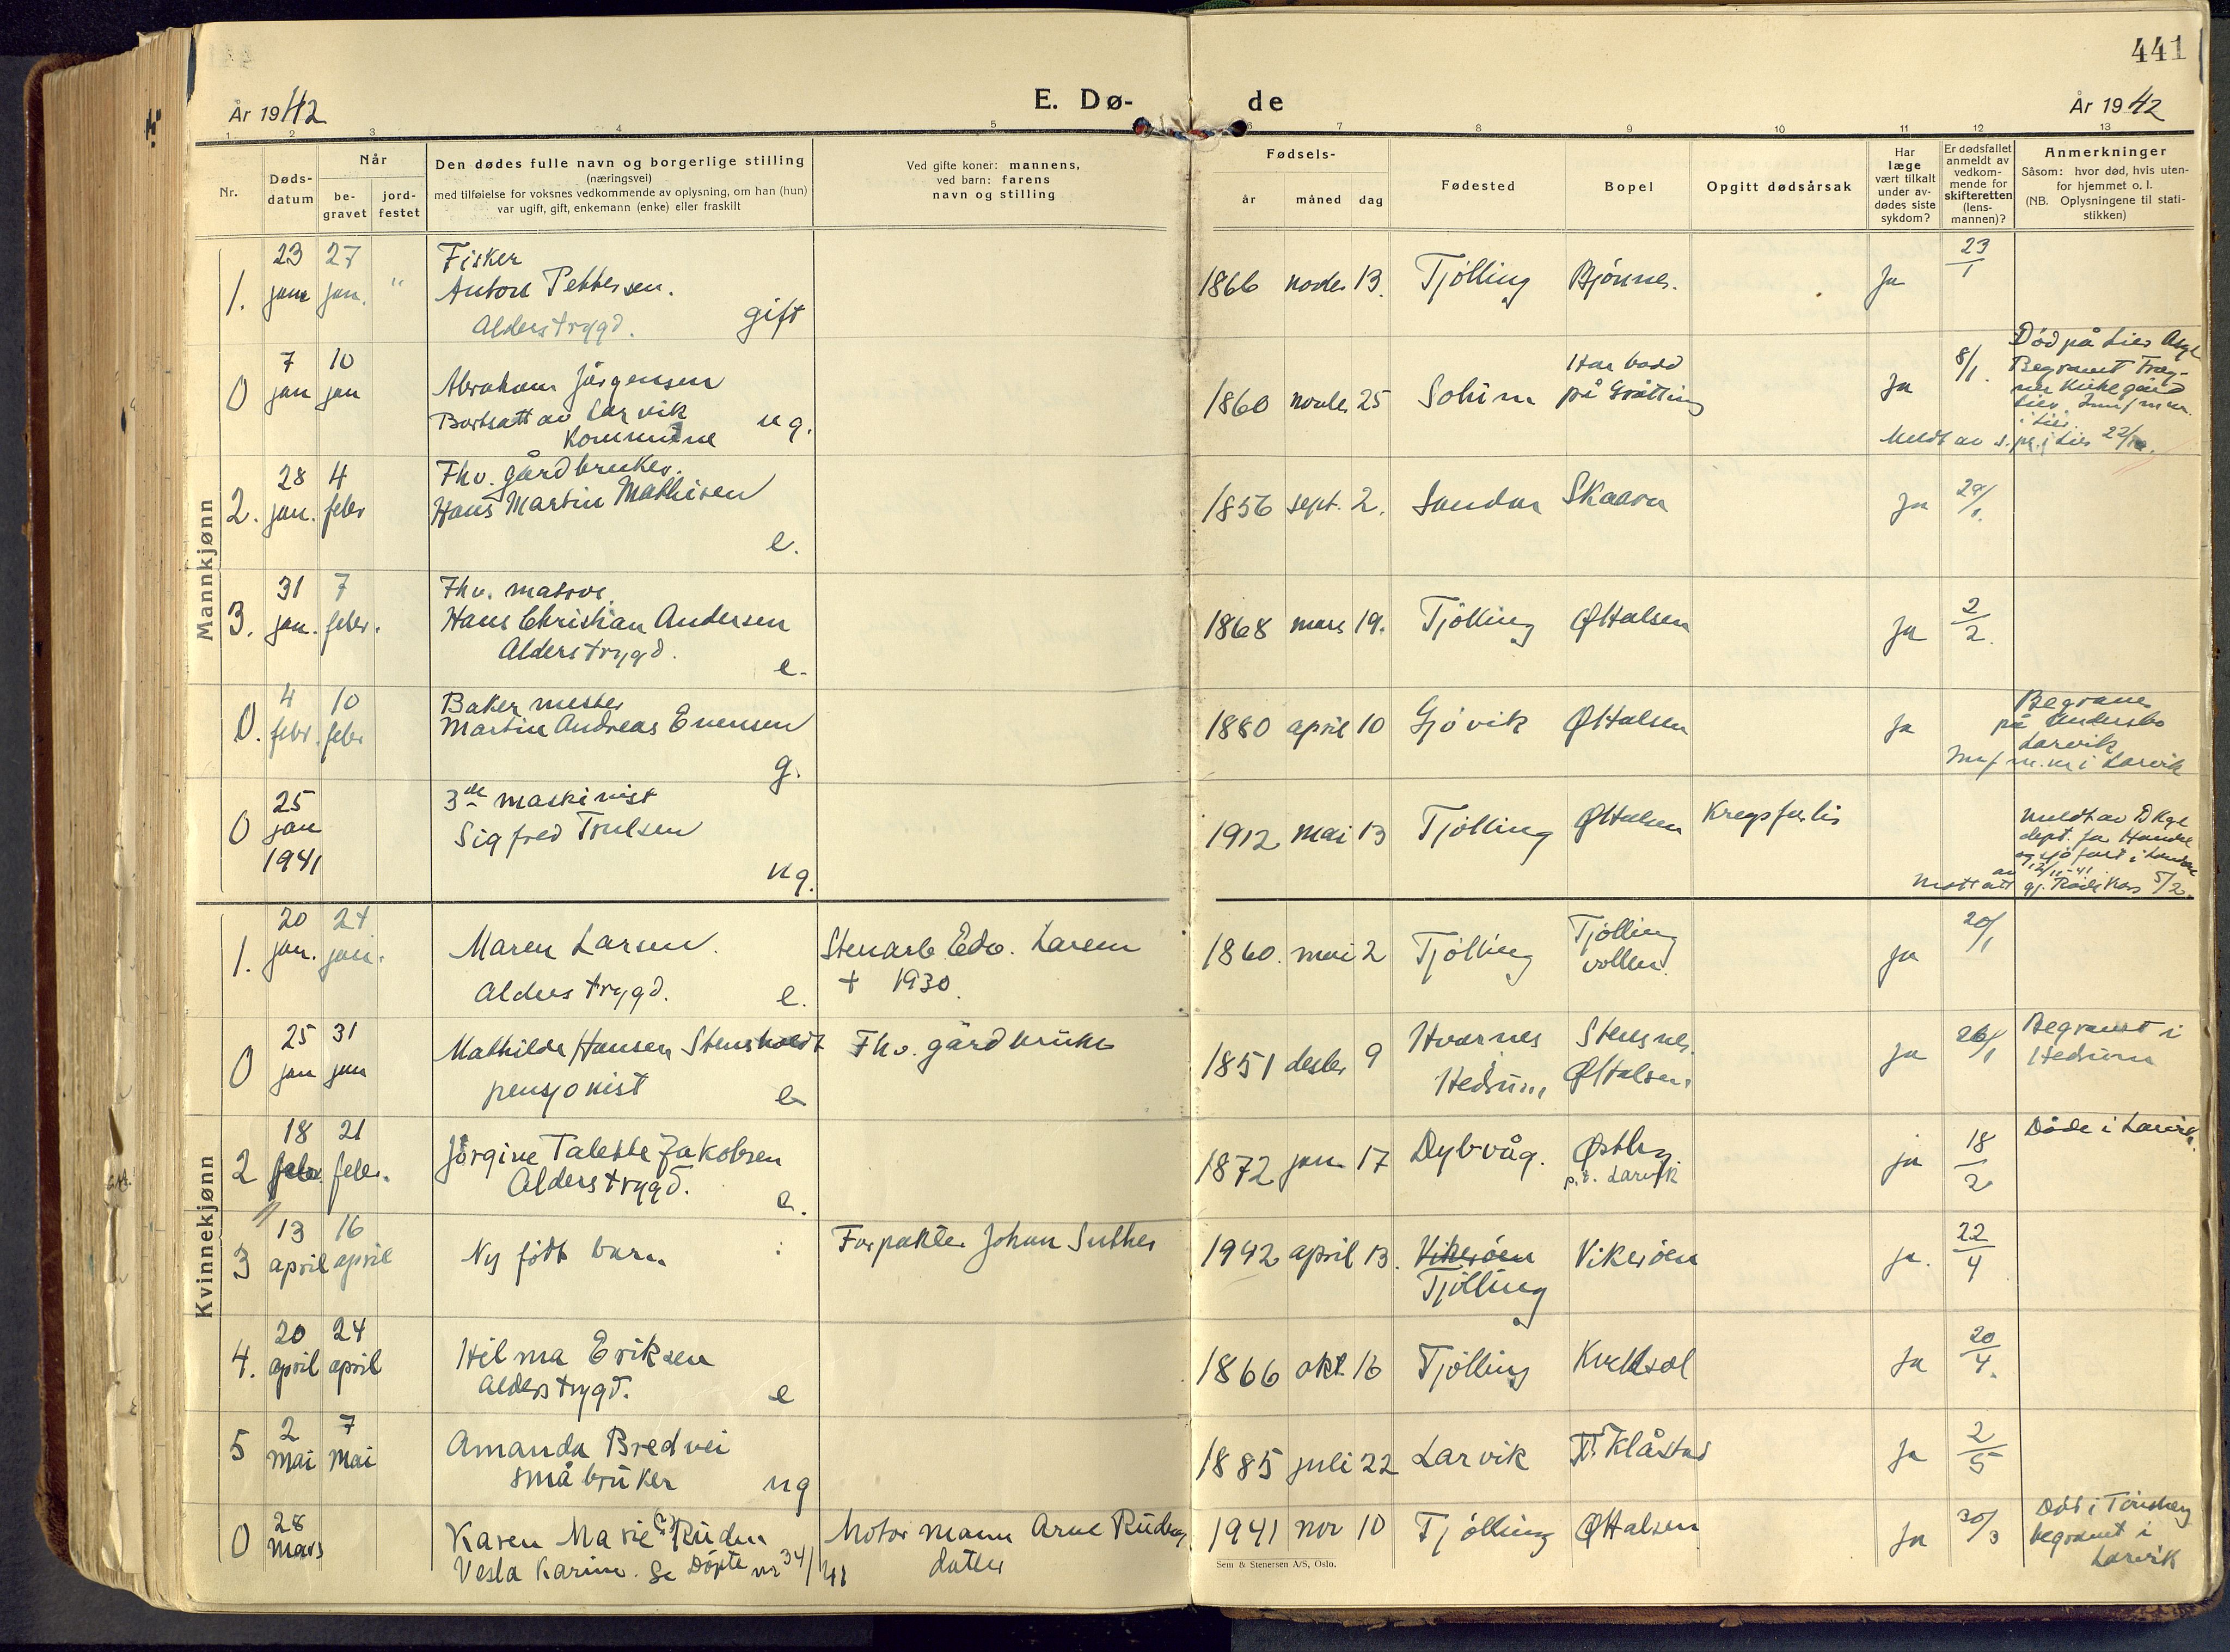 441
År 1942
E. Dø-
de
År 1942
1 2 3 4 5 6 7 8 9 10 11 12 13
Nr.
Døds-
datum
Når
be-
gravet
jord-
festet
Den dødes fulle navn og borgerlige stilling
(næringsvei)
med tilføielse for voksnes vedkommende av oplysning, om han (hun)
var ugift, gift, enkemann (enke) eller fraskilt
Ved gifte koner: mannens,
ved barn: farens
navn og stilling
Fødsels-
år måned dag
Fødested
Bopel
Opgitt dødsårsak
Har
læge
vært tilkalt
under av-
dødes siste
sykdom?
Er dødsfallet
anmeldt av
vedkom-
mende for
skifteretten
(lens-
mannen)?
Anmerkninger
Såsom: hvor død, hvis uten-
for hjemmet o. l.
(NB. Oplysningene til stati-
stikken)
Mannkjønn
1. 23 jan 27 jan. "
Fisker
Anton Pettersen.
Alderstrygd. gift
1866 novbr 13. Tjølling Bjønnes. Ja 23/1
0 7 jan 10 jan
Abraham Jørgensen
Bortsatt av Larvik
Kommune ug.
1860 novbr 25 Solum Har bodd
på Gråtting Ja 8/1.
Død på Lier
Begravet
Kirkegård
Lier.
i Lier.
Meldt av s.pr. i Lier
2. 28 jan. 4 febr
Fhv. gårdbruker.
Hans Martin Mathisen
e.
1856 sept. 2. Sandar Skaara Ja 29/1.
3. 31 jan. 7 febr.
Fhv. matros.
Hans Christian Andersen
Alderstrygd. e.
1868 mars 19. Tjølling Ø Halsen Ja 2/2.
0. 4 febr. 10 febr
Baker mester
Martin Andreas Evensen
g.
1880 april 10 Gjøvik Ø Halsen Ja
Begraves
på Undersbo
Larvik
i Larvik
0 25 jan 1941
3de maskinist
Sigfred Trulsen
ug.
1912 mai 13 Tjølling Ø Halsen Krigsforlis
meldt av D Kgl
dept. for Handel
og sjøfart i London
mottatt gj. Røde Kors 5/2
Kvinnekjønn
1. 20 jan. 24 jan.
Maren Larsen.
Alderstrygd. e.
Stenarb. Edv. Larsen
+ 1930.
1860. mai 2 Tjølling Tjølling
vollen. Ja 20/1
0 25 jan 31 jan
Mathilde Hansen Stensholdt
pensjonist e
Fhv. gårdbruker
1851 desbr 9 Hvarnes
i Hedrum Stensnes.
Ø Halsen. Ja 26/1
Begravet i
Hedrum
2 18 febr. 21 febr.
Jørgine Talette Jakobsen
Alderstrygd. e.
1872 jan. 17 Dybvåg. Østby.
p.t. Larvik ja 18/2
Døde i Larvik.
3 13 april 16 april
Ny født barn :
Forpakter Johan Suther
1942 april 13. Vikerøen
Tjølling Vikerøen ja. 22/4
4. 20 april 24 april
Hilma Eriksen
Alderstrygd. e
1866 okt. 16 Tjølling Ja 20/4.
5 2 mai 7 mai
Amanda Bredvei
småbruker ug
1885 juli 22 Larvik Klåstad Ja 2/5
0 28 mars
Karen Marie (?) Ruden
Vesla Karin. Se Døpte nr 34/41
Motormann Arne Ruden
datter
1941 nov 10 Tjølling Ø Halsen Ja 30/3
Død i Tønsberg
begravet i
Larvik
Sem & Stenersen A/S, Oslo.